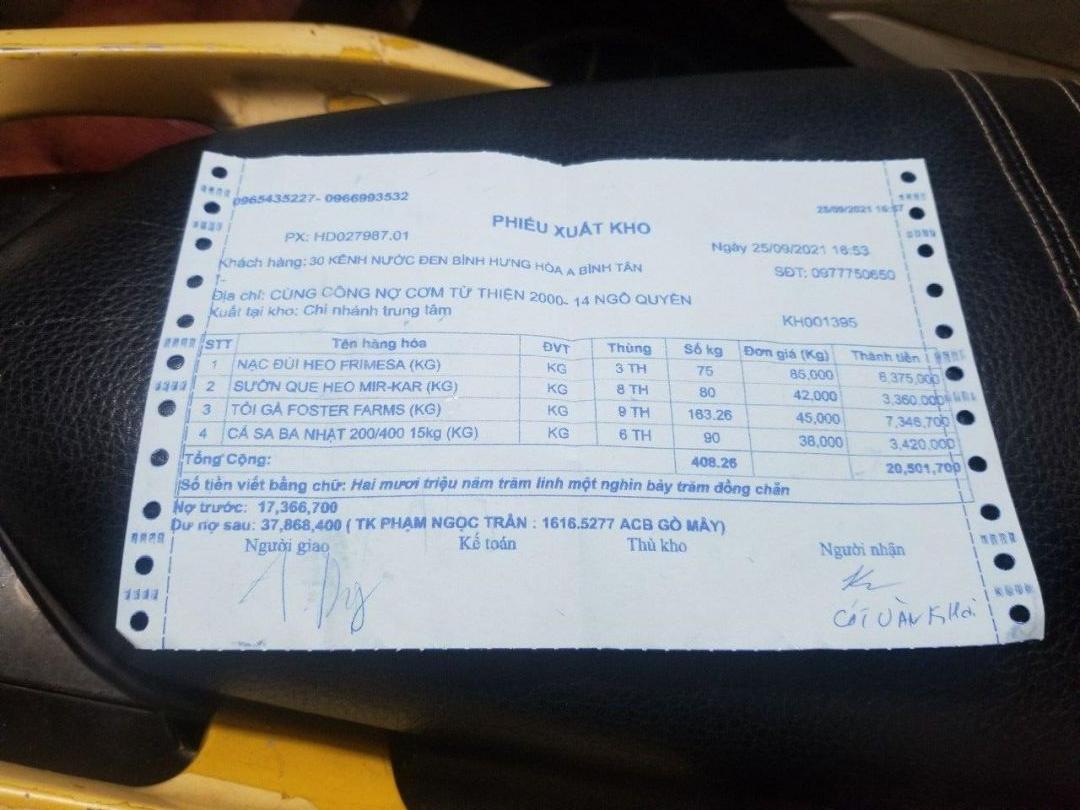 0965435227- 0966993532
25/09/2021 16:57
PHIẾU XUẤT KHO
PX: HD027987.01
Ngày 25/09/2021 16:53
Khách hàng: 30 KÊNH NƯỚC ĐEN BÌNH HƯNG HÒA A BÌNH TÂN
SĐT: 0977750650
Địa chỉ: CÙNG CÔNG NỢ CƠM TỪ THIỆN 2000- 14 NGÔ QUYỀN
Xuất tại kho: Chi nhánh trung tâm
KH001395
STT Tên hàng hóa ĐVT Thùng Số kg Đơn giá (Kg) Thành tiền
1 NẠC ĐÙI HEO FRIMESA (KG) KG 3 TH 75 85,000 6,375,000
2 SƯỜN QUE HEO MIR-KAR (KG) KG 8 TH 80 42,000 3,360,000
3 TỎI GÀ FOSTER FARMS (KG) KG 9 TH 163.26 45,000 7,346,700
4 CÁ SA BA NHẬT 200/400 15kg (KG) KG 6 TH 90 38,000 3,420,000
Tổng Cộng: 408.26 20,501,700
Số tiền viết bằng chữ: Hai mươi triệu năm trăm linh một nghìn bảy trăm đồng chẵn
Nợ trước: 17,366,700
Dư nợ sau: 37,868,400 ( TK PHẠM NGỌC TRẦN : 1616.5277 ACB GÒ MÂY)
Người giao Kế toán Thủ kho Người nhận